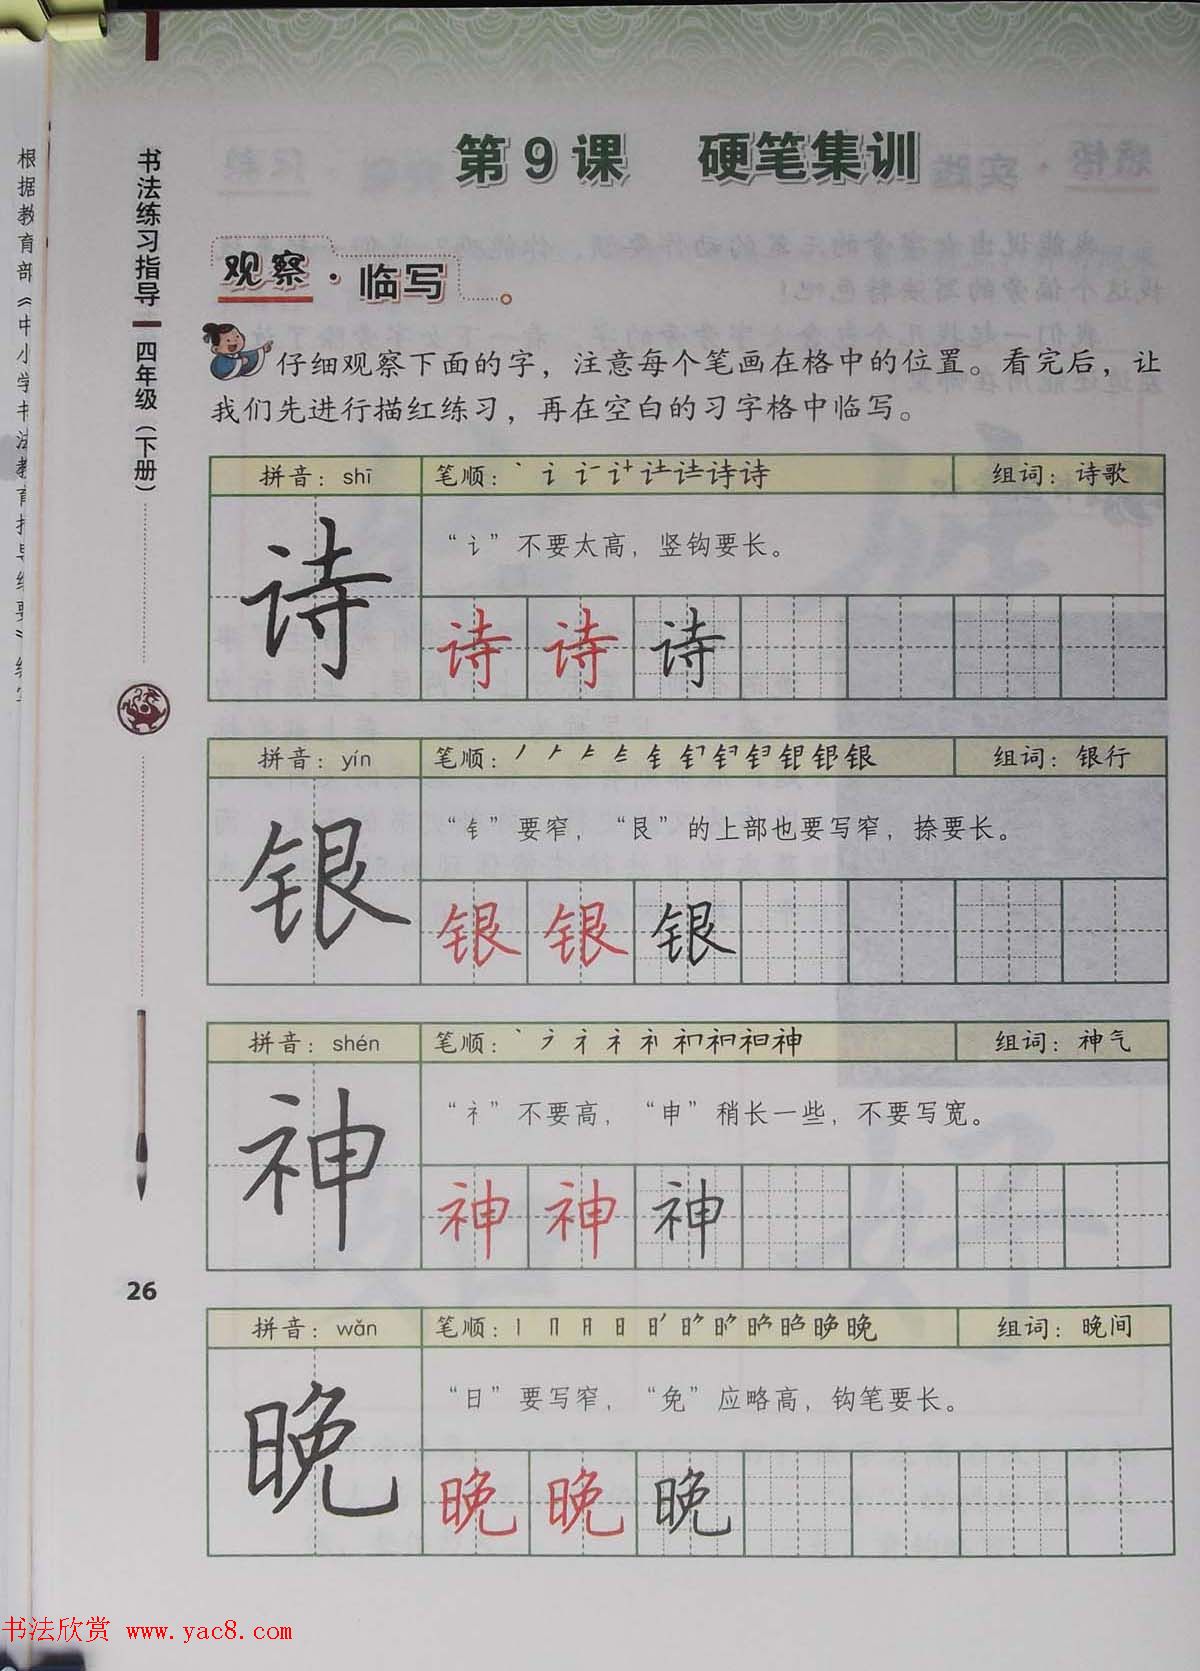 第9课 硬笔集训
观察·临写
仔细观察下面的字，注意每个笔画在格中的位置。看完后，让
我们先进行描红练习，再在空白的习字格中临写。
拼音：shī 笔顺： 组词：诗歌
诗
“讠”不要太高，竖钩要长。
诗 诗 诗
拼音：yín 笔顺： 组词：银行
银
“钅”要窄，“艮”的上部也要写窄，捺要长。
银 银 银
拼音：shén 笔顺： 组词：神气
神
“礻”不要高，“申”稍长一些，不要写宽。
神 神 神
拼音：wǎn 笔顺： 组词：晚间
晚
“日”要写窄，“免”应略高，钩笔要长。
晚 晚 晚
书法练习指导 四年级（下册）
26
根据教育部《中小学书法教育指导纲要》编写
书法欣赏 www.yac8.com